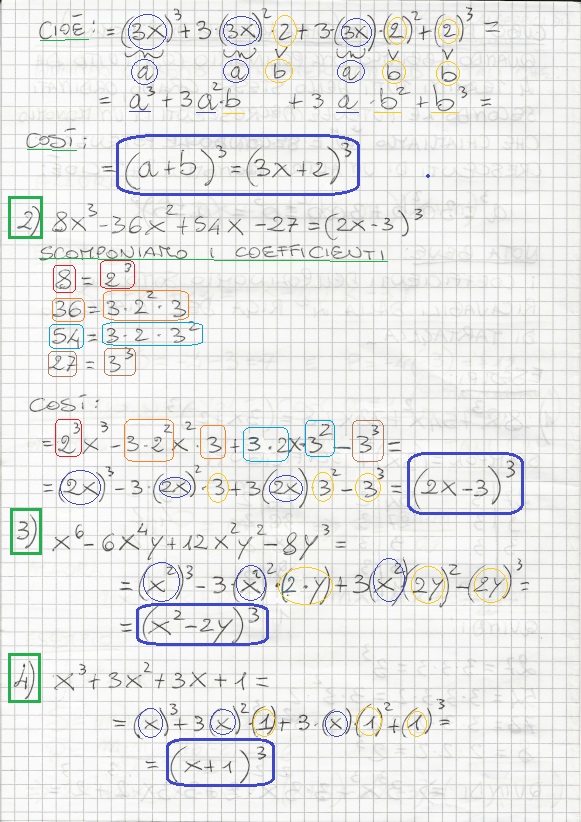 CIOÈ: = (3x)³ + 3·(3x)²·2 + 3·(3x)·(2)² + (2)³ =
a a b a b b
= a³ + 3a²·b + 3a·b² + b³ =
COSÌ:
= (a+b)³ = (3x+2)³
2) 8x³ - 36x² + 54x - 27 = (2x-3)³
SCOMPONIAMO I COEFFICIENTI
8 = 2³
36 = 3·2²·3
54 = 3·2·3²
27 = 3³
COSÌ:
= 2³x³ - 3·2²x²·3 + 3·2x·3² - 3³ =
= (2x)³ - 3·(2x)²·3 + 3(2x)3² - 3³ = (2x-3)³
3) x⁶ - 6x⁴y + 12x²y² - 8y³ =
= (x²)³ - 3·(x²)²·(2·y) + 3(x²)(2y)² - (2y)³ =
= (x² - 2y)³
4) x³ + 3x² + 3x + 1 =
= (x)³ + 3(x)²·(1) + 3·(x)·(1)² + (1)³ =
= (x+1)³